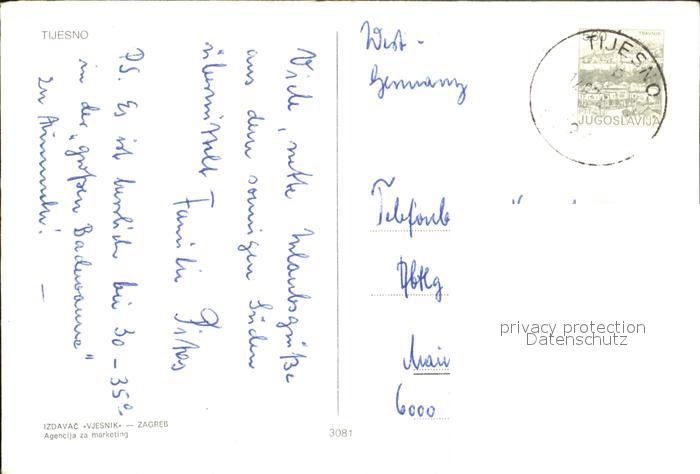 TIJESNO
Viele, nette Urlaubsgrüße
aus dem sonnigen Süden
übermittelt Familie
PS. Es ist herrlich bei 30-35°
in der „großen Badewanne"
zu
West-
Germany
TIJESNO
TRAVNIK
JUGOSLAVIJA
Telefonb
Abtlg
Main
6000
privacy protection
Datenschutz
IZDAVAČ »VJESNIK« — ZAGREB
Agencija za marketing
3081